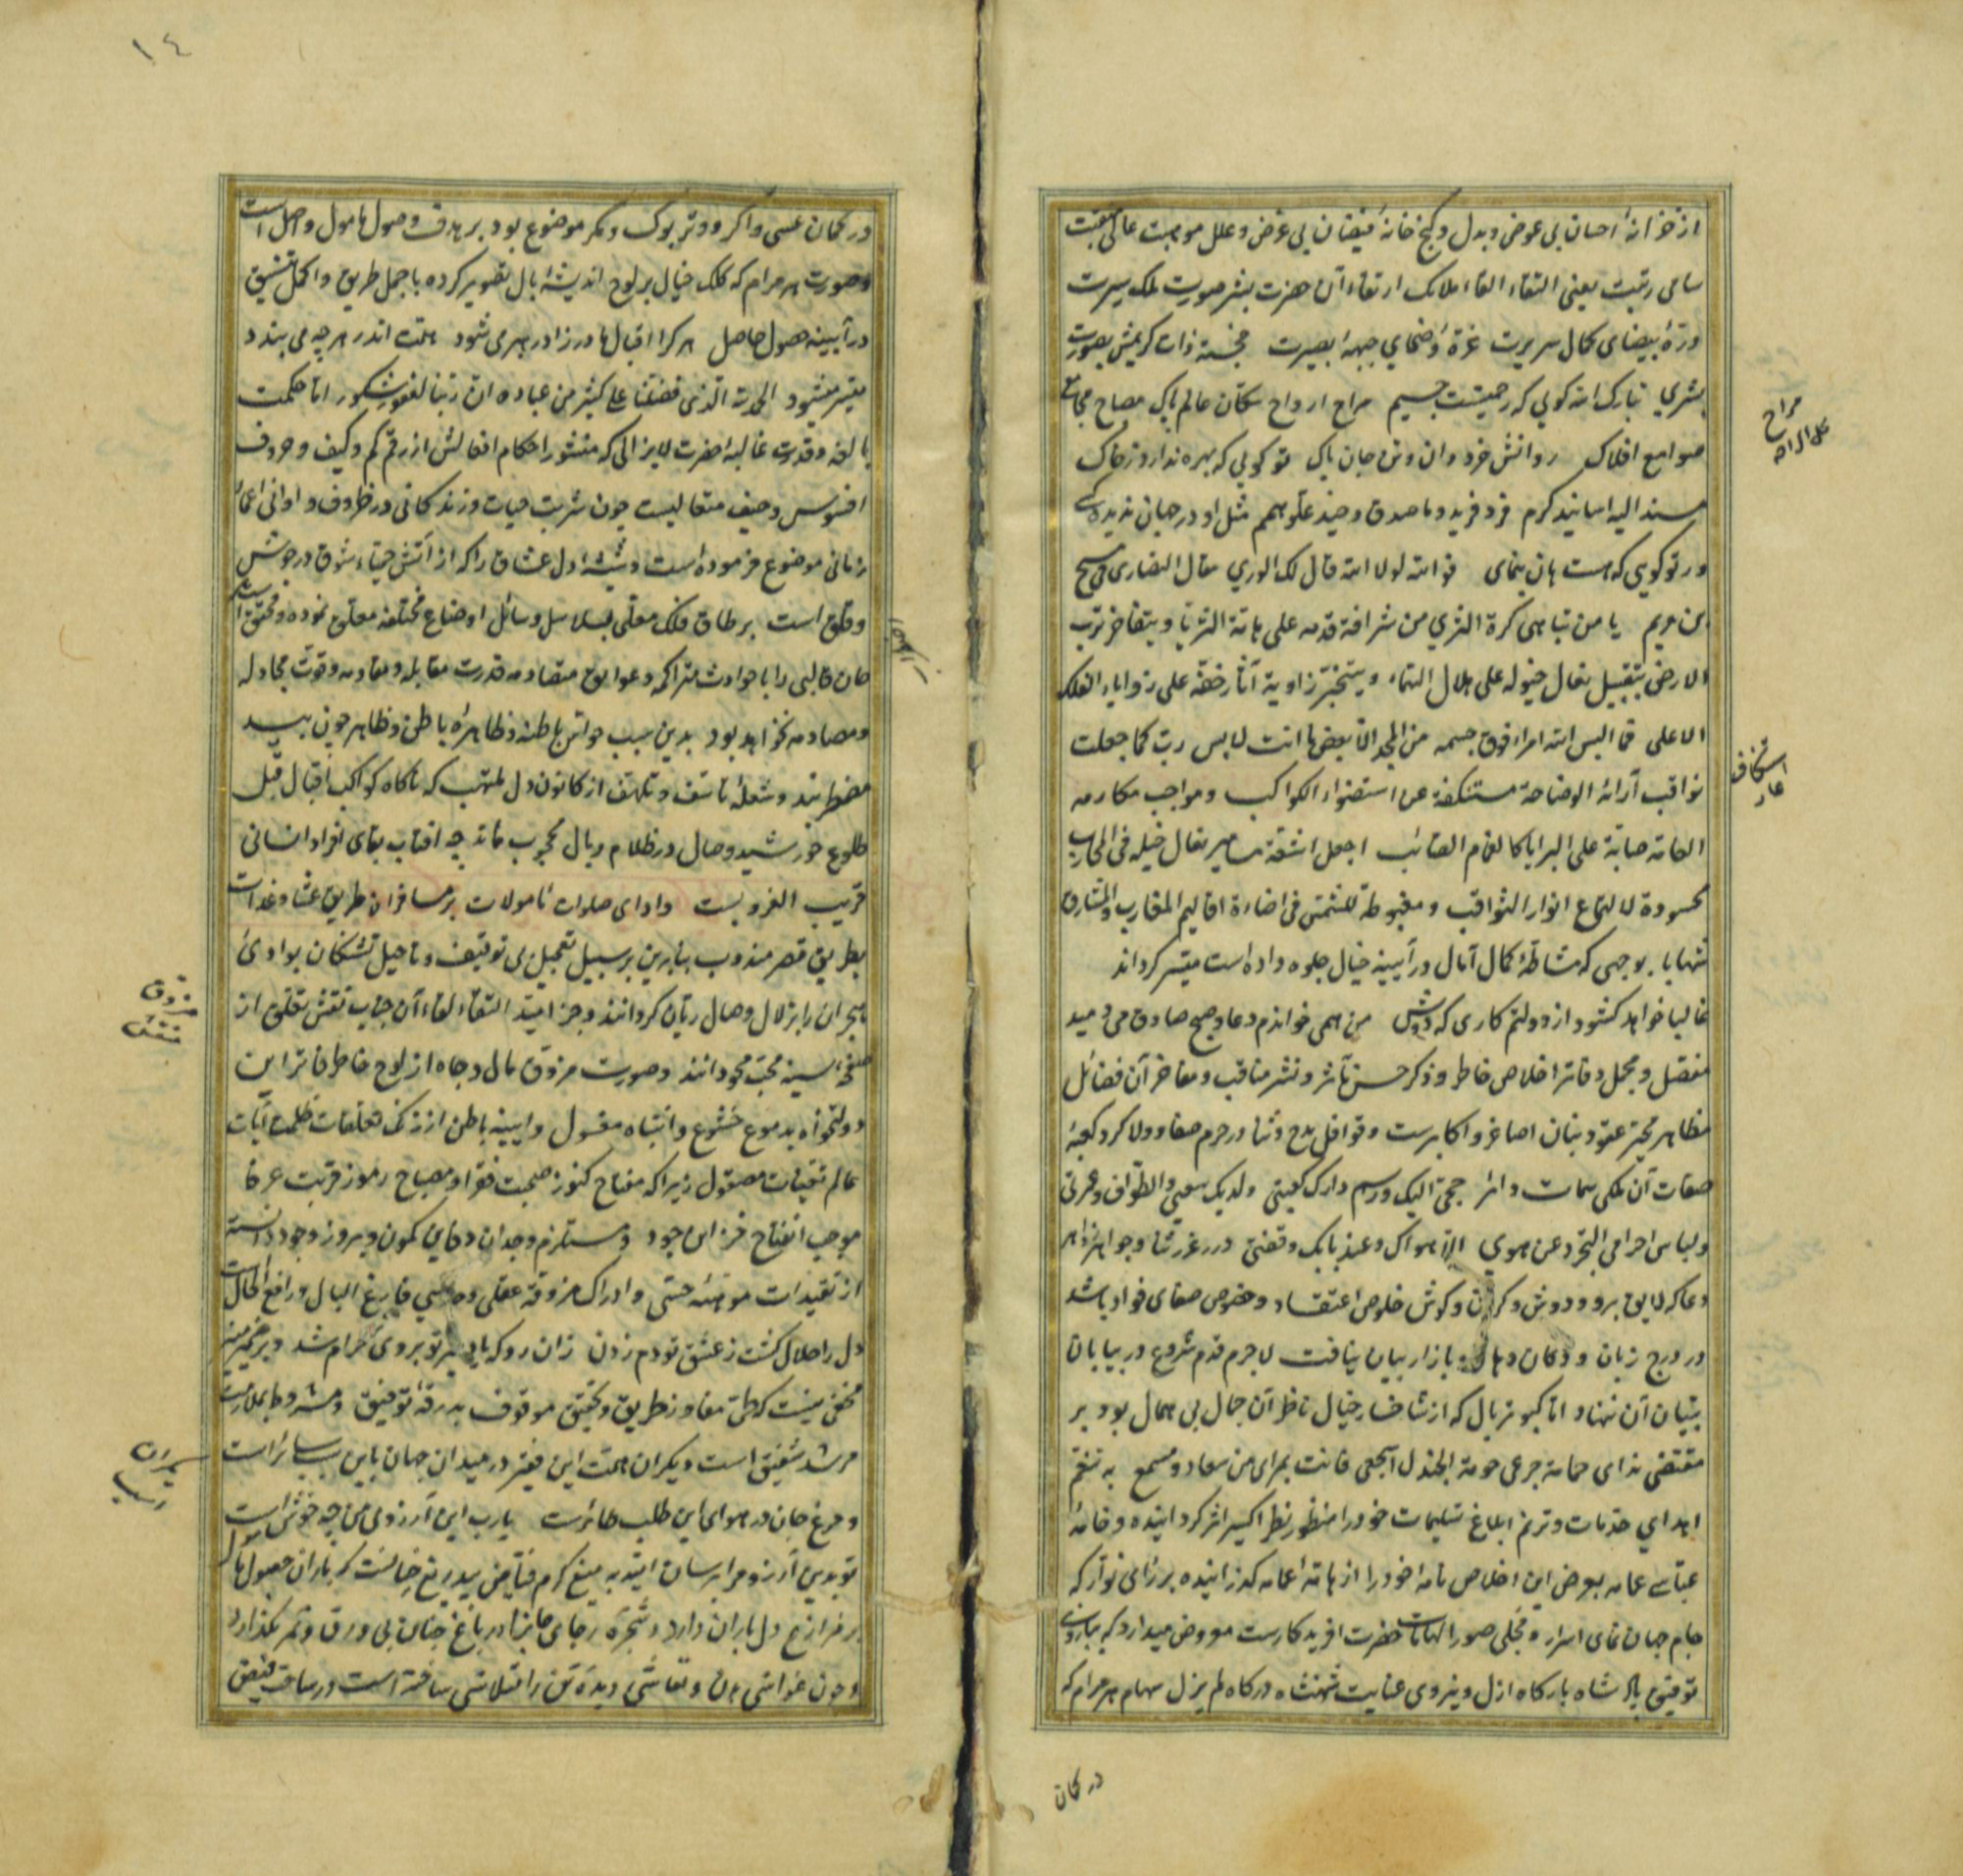 از خزانهٔ احسان بی عوض و بدل و گنج خانهٔ فیضان بی غرض و علل موهبت عالی منقبت
سامی رتبت یعنی التقاء القاء ملائک ارتقاء آن حضرت بشر صورت ملک سیرت
درّهٔ بیضای کمال سریرت غرّهٔ وضحای جبههٔ بصیرت خجسته ذات کریمش بصورت
بشری تبارک الله گویی که رحمتیست جسیم مراح ارواح سکان عالم پاک مصباح مجامع
صوامع افلاک روانش خرد وان و تن جان پاک تو گویی که بهره ندارد ز خاک
مسند الیه اسانید کرم فرد فرید و ما صدق وحید علو همم مثل او در جهان ندیده کسی
ور تو گویی که هست هان بنمای فوالله لولا الله قال لک الوری مقال النصاری فی مسیح
بن مریم یا من تباهی کرة الثری من شرافة قدمه علی هامة الثریا و یتفاخر ترب
الارض بتقبیل نعال خیوله علی هلال السماء و یتبختر زاویة آثار خفه علی زوایا الفلک
الاعلی فما البس الله امرا فوق جسمه من المجد الا بعض ما انت لابس رب کما جعلت
ثواقب آرائه الوضاحة مستنکفة عن استضواء الکواکب و مواجب مکارمه
العامة صابّة علی البرایا کالغمام الصائب اجعل اشعة مسامیر نعال خیله فی المحارب
محسودة لالتماع انوار الثواقب و مغبوطة للشمس فی اضاءة اقالیم المغارب و المشارق
شهابا بوجهی که مشاطهٔ کمال آمال در آیینه خیال جلوه داده است میسر گرداند
غالبا خواهد گشود از دولتم کاری که دوش من همی خواندم دعا و صبح صادق می دمید
مفصل و مجمل دفاتر اخلاص خاطر و ذکر حسن مآثر و نشر مناقب و مفاخر آن فضائل
مظاهر محیّر عقود بنان اصاغر و اکابرست و قوافل مدح و ثنا در حرم صفا و ولا گرد کعبهٔ
صفات آن ملکی سمات دائر حجی الیک و رسم دارک کعبتی ولدیک سعیی و الطواف و عمرتی
ولباس احرامی التجرد عن هوی الا هواک و عند بابک وقفتی درر غرر ثنا و جواهر زواهر
دعا که لایق بر و دوش و گردن و گوش خلوص اعتقاد و خصوص صفای فواد باشد
در درج زبان و دکان دهان و بازار بیان نیافت لاجرم قدم شروع در بیابان
تبیان آن ننهاد اما کبوتر بال که از شاخسار خیال ناظر آن جمال بی همال بود بر
مقتضی ندای حمامة جرعی حومة الجندل اسجعی فانت بمرای من سعاد و مسمع به تنغم
اهدای خدمات و ترنم ابلاغ تسلیمات خود را منظور نظر اکسیر اثر گردانیده و خامهٔ
عباسی عمامه بعرض این اخلاص نامه خود را از هامهٔ عمامه گذرانیده بر رای نوّار که
جام جهان نمای اسرار و مجلی صور الهامات حضرت آفریدگارست معروض میدارد که بیاری
توفیق پادشاه بارگاه ازل و نیروی عنایت شهنشاه درگاه لم یزل سهام هر مرام که
در کمان
مراح
محل الراحه
استنکاف
عار
١٤
در کمان عسی واگر و وتر بوک و مگر موضوع بود بر هدف وصول مامول واصل است
وصورت هر مرام که کلک خیال بر لوح اندیشهٔ بال تصویر کرده باجمل طریق و اکمل تنسیق
در آیینه حصول حاصل هر کرا اقبال مادرزاد رهبر می شود هست اندر هر چه می بندد
میسر میشود الحمد لله الذی فضلنا علی کثیر من عباده ان ربنا لغفور شکور اما حکمت
بالغه و قدرت غالبهٔ حضرت لایزالی که منشور احکام افعالش از رقم کم و کیف و حروف
افسوس و حیف متعالیست چون شربت حیات و زندگانی در ظروف و اوانی اعمار
زمانی موضوع فرموده است و شیشهٔ دل عشاق را که از آتش حمیّاء شوق در جوش
وقلق است بر طاق فلک معلی بسلاسل وسائل اوضاع مختلفه معلق نموده و محقق است
جان قالبی را با حوادث متراکمه و عوایق متصادمه قدرت مقابله و مقاومه و قوت مجادله
و مصادمه نخواهد بود بدین سبب حواس باطنه و ظاهرهٔ باطن و ظاهر چون بید
مضطربند و شعلهٔ تاسف و تلهف از کانون دل ملتهب که ناگاه کواکب اقبال قبل
طلوع خورشید وصال در ظلام وبال محجوب ماند چه آفتاب بقای افراد انسانی
قریب الغروبست و ادای صلوات مامولات بر مسافران طریق عشا و غدات
بطریق قصر مندوب بنابرین بر سبیل تعجیل بی توقیف و تاجیل تشنگان بوادی
هجران را بزلال وصال ریان گردانند و جز امید التقاء لقاء آن جناب نقش تعلق از
صفحهٔ سینه محبت محو دانند و صورت مزوق مال و جاه از لوح خاطر فاتر این
دولتخواه بدموع خشوع و انتباه مغسول و آیینه باطن از زنگ تعلقات ظلمت آیات
عالم تعینات مصقول زیرا که مفتاح کنوز صحبت فقرا و مصباح رموز قربت عرفا
موجب انفتاح خزاین جود و مستلزم وجدان دفاین کمون و بروز وجود دانسته
از تقیدات موهّمهٔ حسی و ادراک مزوقهٔ عقلی و فارغ البال و رافع الحال است
دل را حلال گشت ز عشق تو دم زدن زان رو که بی تو بروی حرام شد و بر ضمیر منیر
مخفی نیست که طی مفاوز طریق و تحقیق موقوف بدرقهٔ توفیق و مشروط بملازمت
مرشد شفیق است و یکران همت این فقیر در میدان جهان باین سبب سائر است
و مرغ جان در هوای این طلب طائرست یارب این آرزوی من چه خوش است
تو بدین آرزو مرا برسان امید به میغ کرم فیاض بیدریغ جانست که باران حصول مامول
بر مزارع دل باران دارد و شجرهٔ رجای ما را در باغ جنان بی ورق و ثمر نگذارد
و چون غواشی بدن و تعاشی دیدهٔ تن را متلاشی ساخته است و رسایق فیض
مزوق
منقش
یکران
اسب